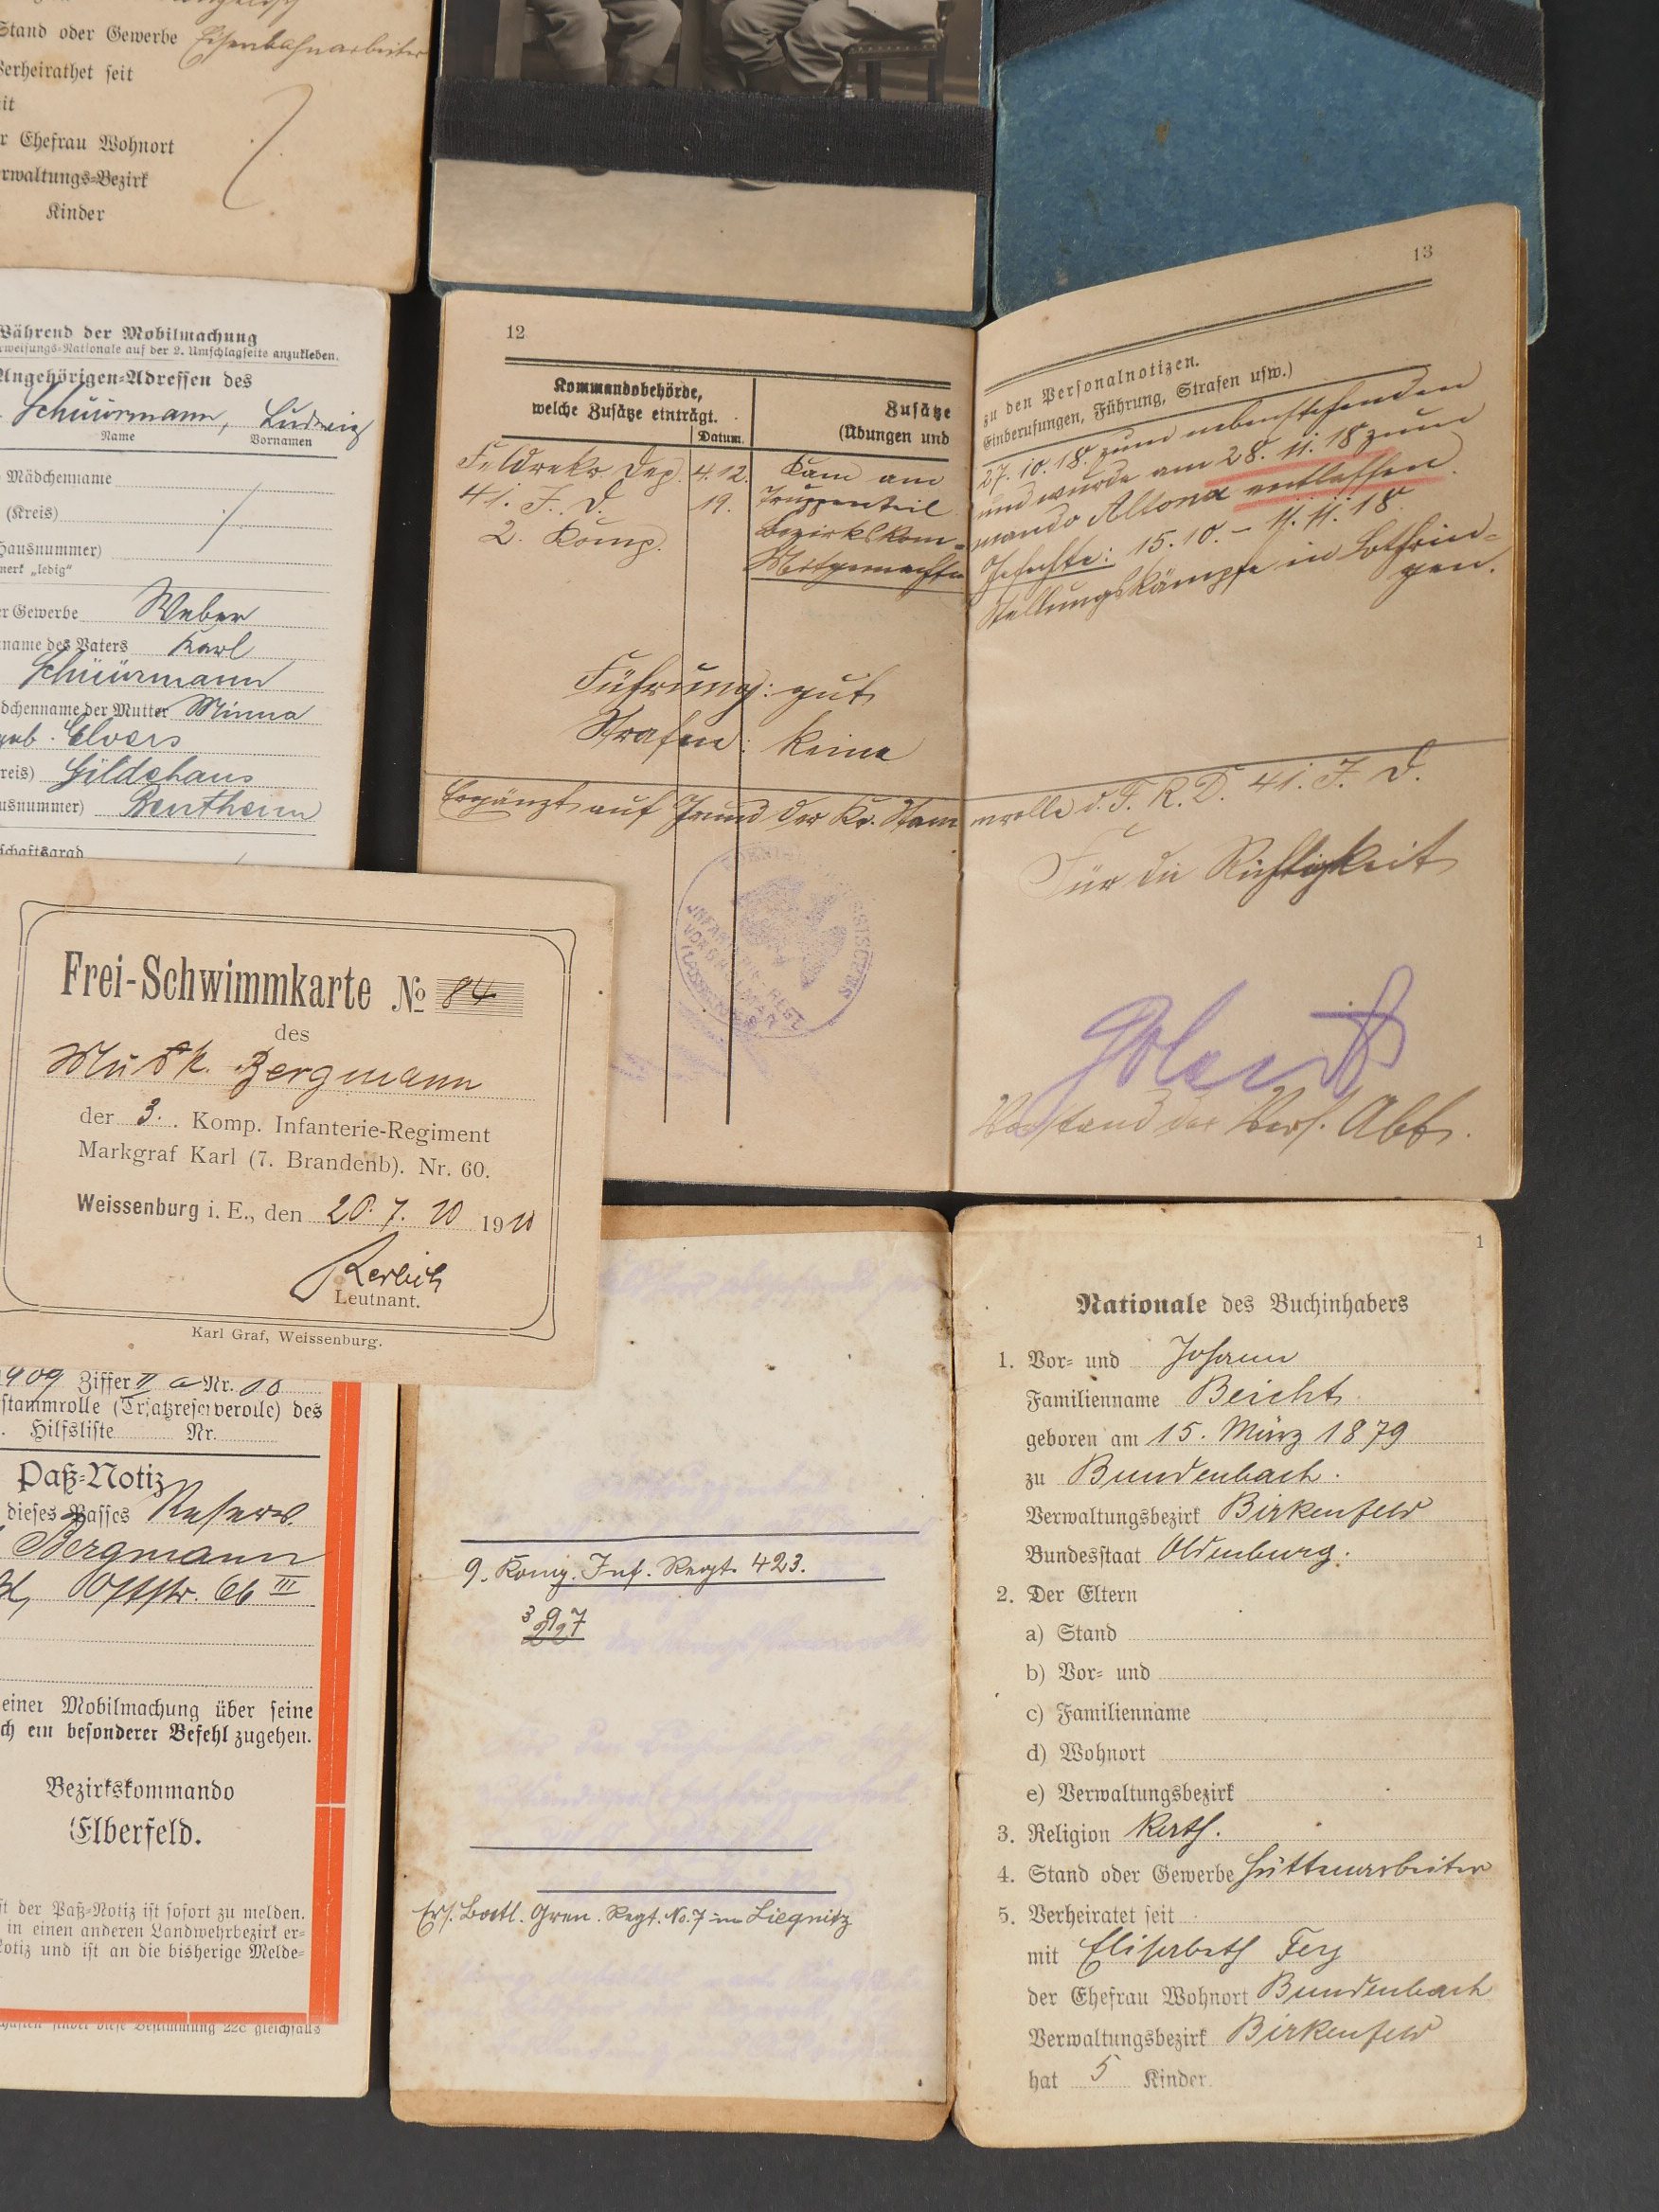 Stand oder Gewerbe Eisenbahnarbeiter
Verheirathet seit
it
r Ehefrau Wohnort
rwaltungs-Bezirk
Kinder
Während der Mobilmachung
rweisungs-Nationale auf der 2. Umschlagseite anzukleben.
Angehörigen-Adressen des
Schüürmann, Ludwig
Name Vornamen
Mädchenname
(Kreis)
Hausnummer)
merk „ledig“
er Gewerbe Weber
name des Vaters Karl
Schüürmann
dchenname der Mutter Minna
geb. Elvers
reis) Gildehaus
usnummer) Bentheim
schaftsgrad
Frei-Schwimmkarte No 84
des
Musk. Bergmann
der 3. Komp. Infanterie-Regiment
Markgraf Karl (7. Brandenb). Nr. 60.
Weissenburg i. E., den 20. 7. 10 1910
Leutnant.
Karl Graf, Weissenburg.
1909 Ziffer II a Nr.
stammrolle (Ersatzreserverolle) des
Hilfsliste Nr.
Paß-Notiz
dieses Passes Reserv.
Bergmann
66 III
einer Mobilmachung über seine
ch ein besonderer Befehl zugehen.
Bezirkskommando
Elberfeld.
st der Paß-Notiz ist sofort zu melden.
in einen anderen Landwehrbezirk er-
otiz und ist an die bisherige Melde-
findet diese Bestimmung 22c gleichfalls
12
Kommandobehörde,
welche Zusätze einträgt.
Datum.
Zusätze
(Übungen und
Feldrekr. Dep. 4. 12. Kam am
41. J. D. 19. Truppenteil
2. Komp. Bezirkskom-
Mitgemachte
Führung: gut
Strafen: keine
Ergänzt auf Grund der Kr. Stam
13
zu den Personalnotizen.
Einberufungen, Führung, Strafen usw.)
27. 10. 18. zum nebenstehenden
und wurde am 28. 11. 18 zum
mando Altona entlassen.
Gefechte: 15. 10. – 11. 11. 18.
Stellungskämpfe in Lothrin-
gen.
mrolle d. F. R. D. 41. J. D.
Für die Richtigkeit
Vorstand der Vers. Abt.
9. Komp. Inf. Regt. 423.
Ers. Batl. Gren. Regt. No. 7 in Liegnitz
1
Nationale des Buchinhabers
1. Vor- und Johann
Familienname Beicht
geboren am 15. März 1879
zu Bundenbach.
Verwaltungsbezirk Birkenfeld
Bundesstaat Oldenburg.
2. Der Eltern
a) Stand
b) Vor- und
c) Familienname
d) Wohnort
e) Verwaltungsbezirk
3. Religion Kath.
4. Stand oder Gewerbe Hüttenarbeiter
5. Verheiratet seit
mit Elisabeth Fey
der Ehefrau Wohnort Bundenbach
Verwaltungsbezirk Birkenfeld
hat 5 Kinder.